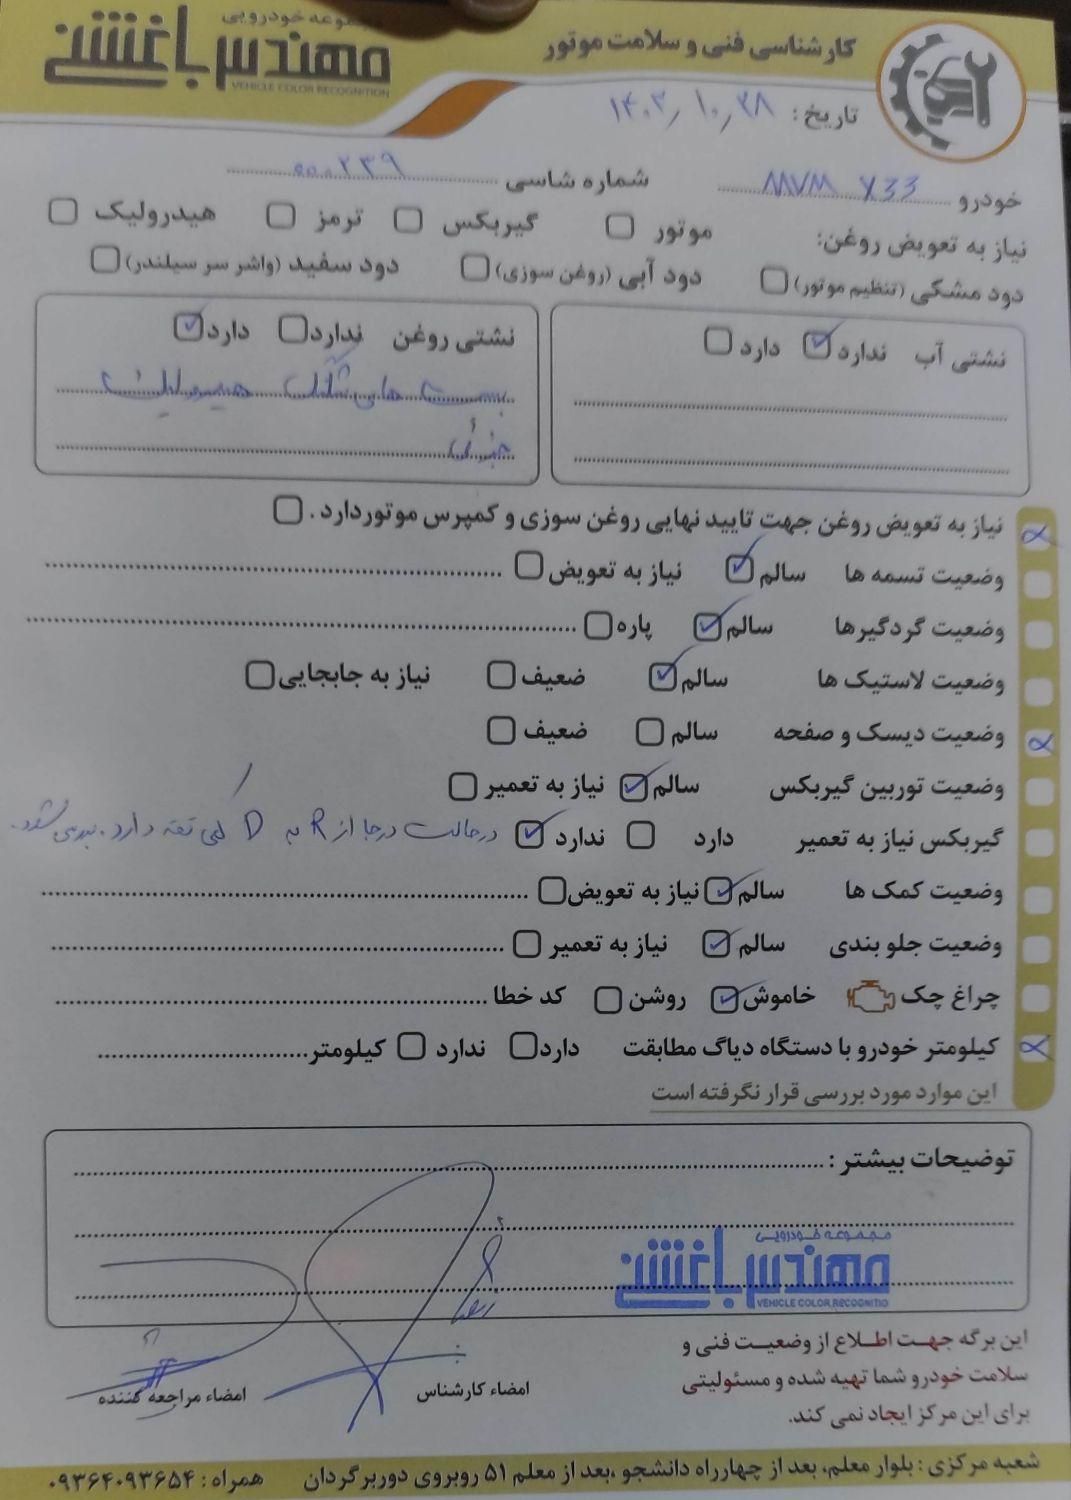 مجموعه خودرویی
مهندس باغشنی
VEHICLE COLOR RECOGNITION
کارشناسی فنی و سلامت موتور
تاریخ: ۱۴۰۳/۱۰/۲۸
خودرو MVM X33 شماره شاسی ۰۰۰۲۳۹
نیاز به تعویض روغن: موتور گیربکس ترمز هیدرولیک
دود مشکی (تنظیم موتور) دود آبی (روغن سوزی) دود سفید (واشر سر سیلندر)
نشتی آب ندارد دارد
نشتی روغن ندارد دارد
بست های شلنگ هیدرولیک
جزئی
نیاز به تعویض روغن جهت تایید نهایی روغن سوزی و کمپرس موتوردارد.
وضعیت تسمه ها سالم نیاز به تعویض
وضعیت گردگیرها سالم پاره
وضعیت لاستیک ها سالم ضعیف نیاز به جابجایی
وضعیت دیسک و صفحه سالم ضعیف
وضعیت توربین گیربکس سالم نیاز به تعمیر
گیربکس نیاز به تعمیر دارد ندارد درحالت درجا از R به D کمی تقه دارد. بررسی شود.
وضعیت کمک ها سالم نیاز به تعویض
وضعیت جلو بندی سالم نیاز به تعمیر
چراغ چک خاموش روشن کد خطا
کیلومتر خودرو با دستگاه دیاگ مطابقت دارد ندارد کیلومتر
این موارد مورد بررسی قرار نگرفته است
توضیحات بیشتر:
مجموعه خودرویی
مهندس باغشنی
VEHICLE COLOR RECOGNITIO
این برگه جهت اطلاع از وضعیت فنی و
سلامت خودرو شما تهیه شده و مسئولیتی
برای این مرکز ایجاد نمی کند.
امضاء کارشناس
امضاء مراجعه کننده
شعبه مرکزی: بلوار معلم، بعد از چهارراه دانشجو، بعد از معلم ۵۱ روبروی دوربرگردان همراه: ۰۹۳۶۴۰۹۳۶۵۴